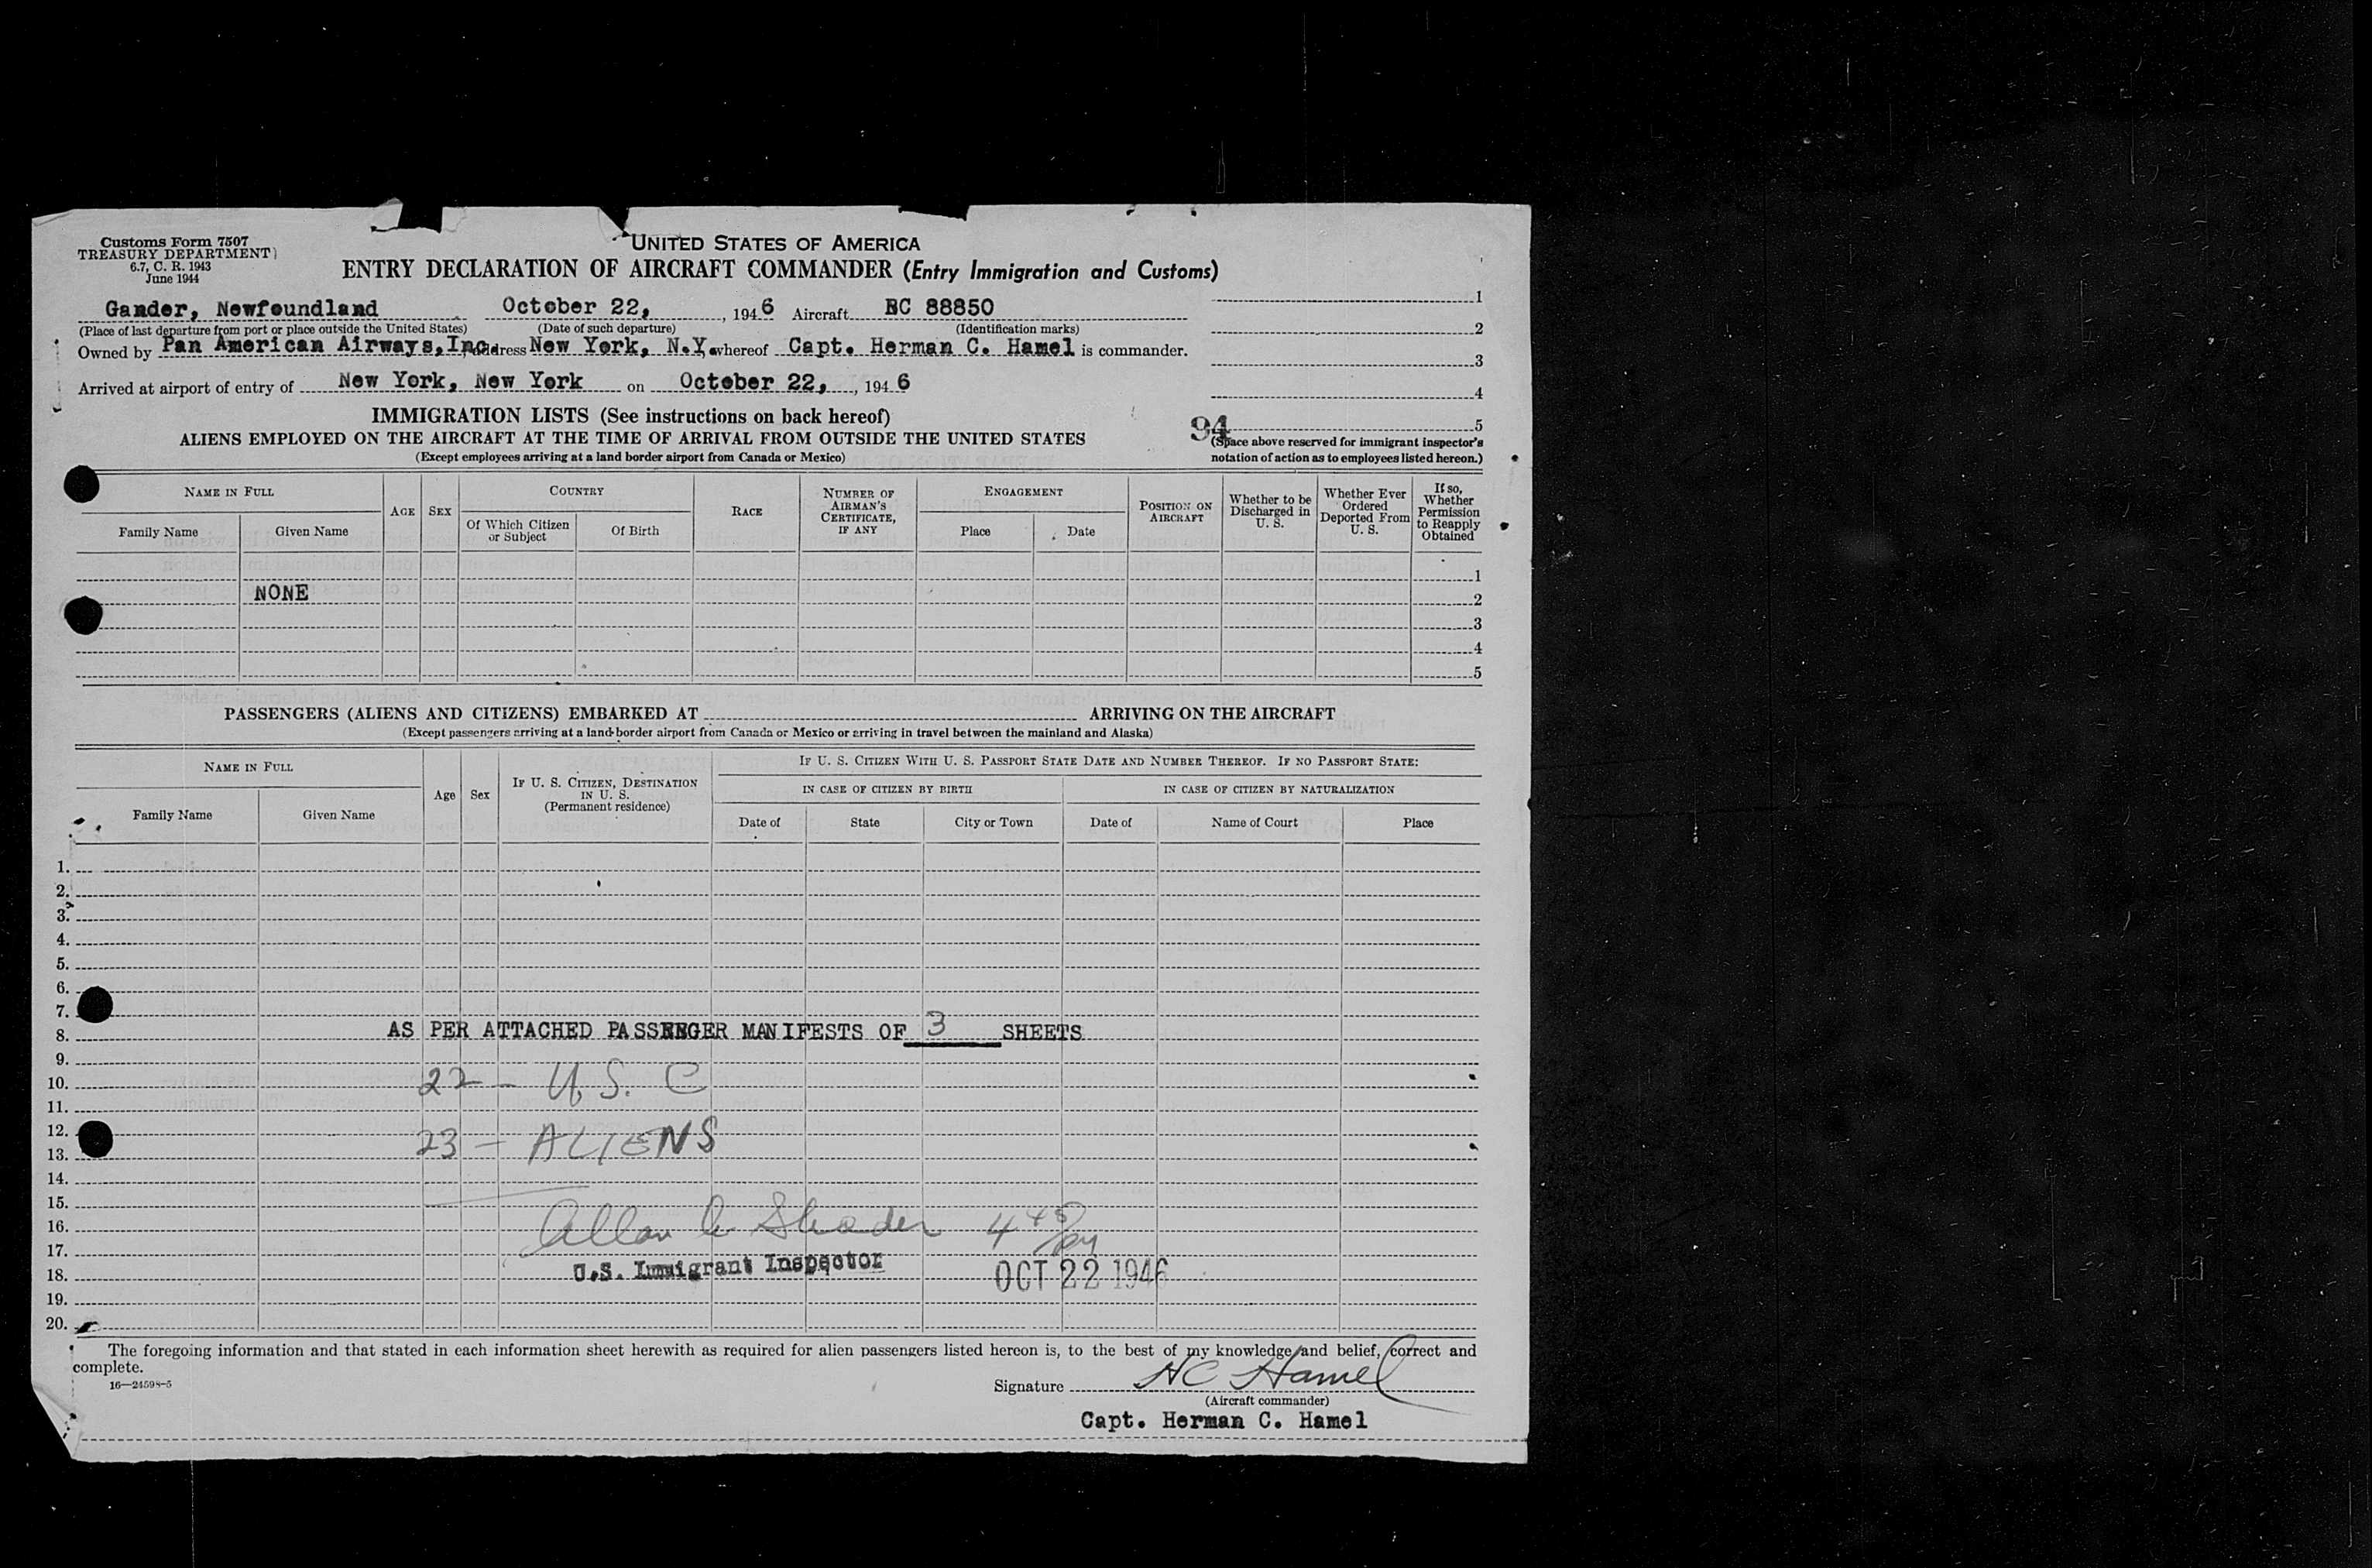 Customs Form 7507
TREASURY DEPARTMENT
6.7, C. R. 1943
June 1944
UNITED STATES OF AMERICA
ENTRY DECLARATION OF AIRCRAFT COMMANDER (Entry Immigration and Customs)
Gander, Newfoundland October 22, , 1946 Aircraft NC 88850
(Place of last departure from port or place outside the United States) (Date of such departure) (Identification marks)
Owned by Pan American Airways, Inc. Address New York, N.Y. whereof Capt. Herman C. Hamel is commander.
Arrived at airport of entry of New York, New York on October 22, , 1946
1
2
3
4
5
94
(Space above reserved for immigrant inspector's
notation of action as to employees listed hereon.)
IMMIGRATION LISTS (See instructions on back hereof)
ALIENS EMPLOYED ON THE AIRCRAFT AT THE TIME OF ARRIVAL FROM OUTSIDE THE UNITED STATES
(Except employees arriving at a land border airport from Canada or Mexico)
NAME IN FULL
Family Name Given Name
AGE SEX
COUNTRY
Of Which Citizen or Subject Of Birth
RACE
NUMBER OF AIRMAN'S CERTIFICATE, IF ANY
ENGAGEMENT
Place Date
POSITION ON AIRCRAFT
Whether to be Discharged in U. S.
Whether Ever Ordered Deported From U. S.
If so, Whether Permission to Reapply Obtained
1
NONE 2
3
4
5
PASSENGERS (ALIENS AND CITIZENS) EMBARKED AT ARRIVING ON THE AIRCRAFT
(Except passengers arriving at a land border airport from Canada or Mexico or arriving in travel between the mainland and Alaska)
NAME IN FULL
Family Name Given Name
Age Sex
IF U. S. CITIZEN, DESTINATION IN U. S. (Permanent residence)
IF U. S. CITIZEN WITH U. S. PASSPORT STATE DATE AND NUMBER THEREOF. IF NO PASSPORT STATE:
IN CASE OF CITIZEN BY BIRTH IN CASE OF CITIZEN BY NATURALIZATION
Date of State City or Town Date of Name of Court Place
1.
2.
3.
4.
5.
6.
7.
8. AS PER ATTACHED PASSENGER MANIFESTS OF 3 SHEETS
9.
10. 22 - U.S. C
11.
12.
13. 23 - ALIENS
14.
15.
16. Allan Shader 4 45 PM
17.
18. U.S. Immigrant Inspector OCT 22 1946
19.
20.
The foregoing information and that stated in each information sheet herewith as required for alien passengers listed hereon is, to the best of my knowledge and belief, correct and
complete.
16—24598-5
Signature HC Hamel
(Aircraft commander)
Capt. Herman C. Hamel